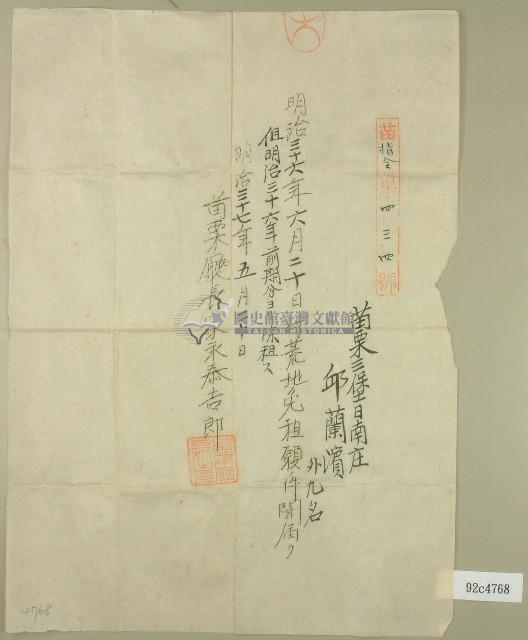 苗指令第四三四號
苗栗三堡日南庄
邱蘭濱
外九名
明治三十六年六月二十日荒地免租願件聞届ク
但明治三十六年前期分ヨリ除租ス
明治三十七年五月 日
苗栗廳長家永泰吉郎
國史館臺灣文獻館
TAIWAN HISTORICA
4768
92c4768